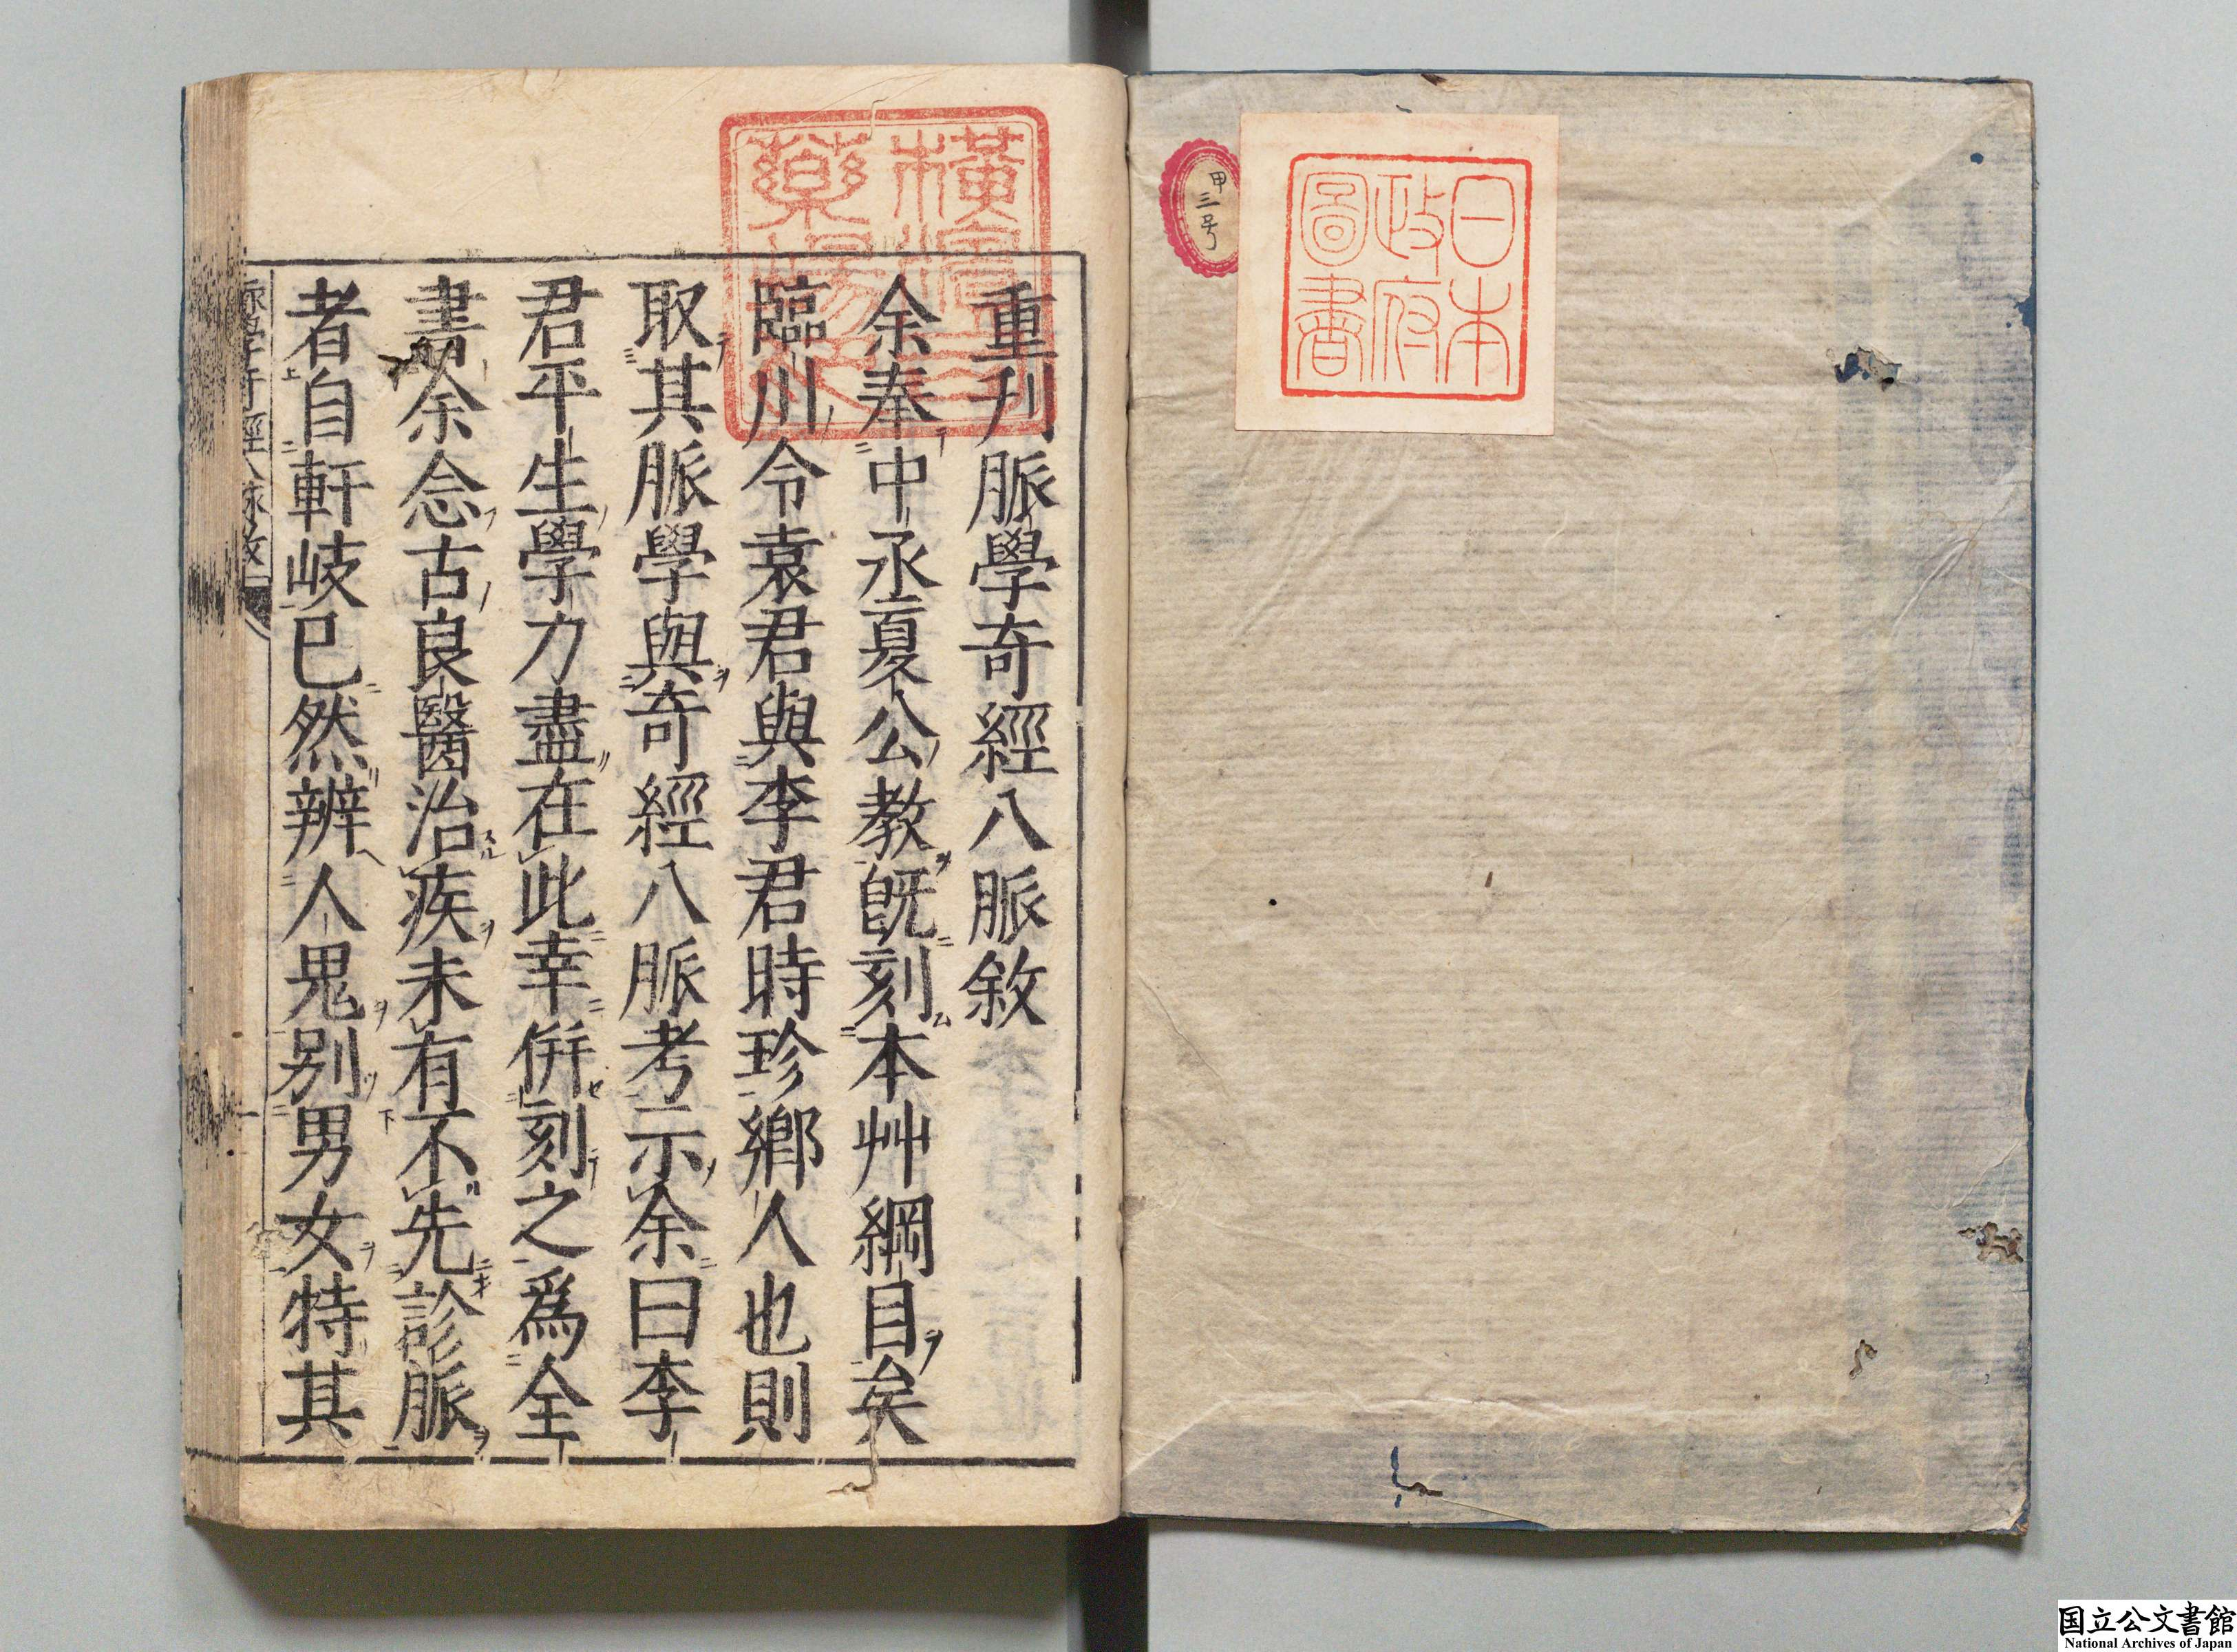 日本
政府
圖書
甲三号
重刋脈學奇經八脈敘
余奉中丞夏公教旣刻本艸綱目矣
臨川令袁君與李君時珍鄉人也則
取其脈學與奇經八脈考示余曰李
君平生學力盡在此幸倂刻之爲全
書余念古良醫治疾未有不先診脈
者自軒岐已然辨人鬼别男女特其
国立公文書館
National Archives of Japan